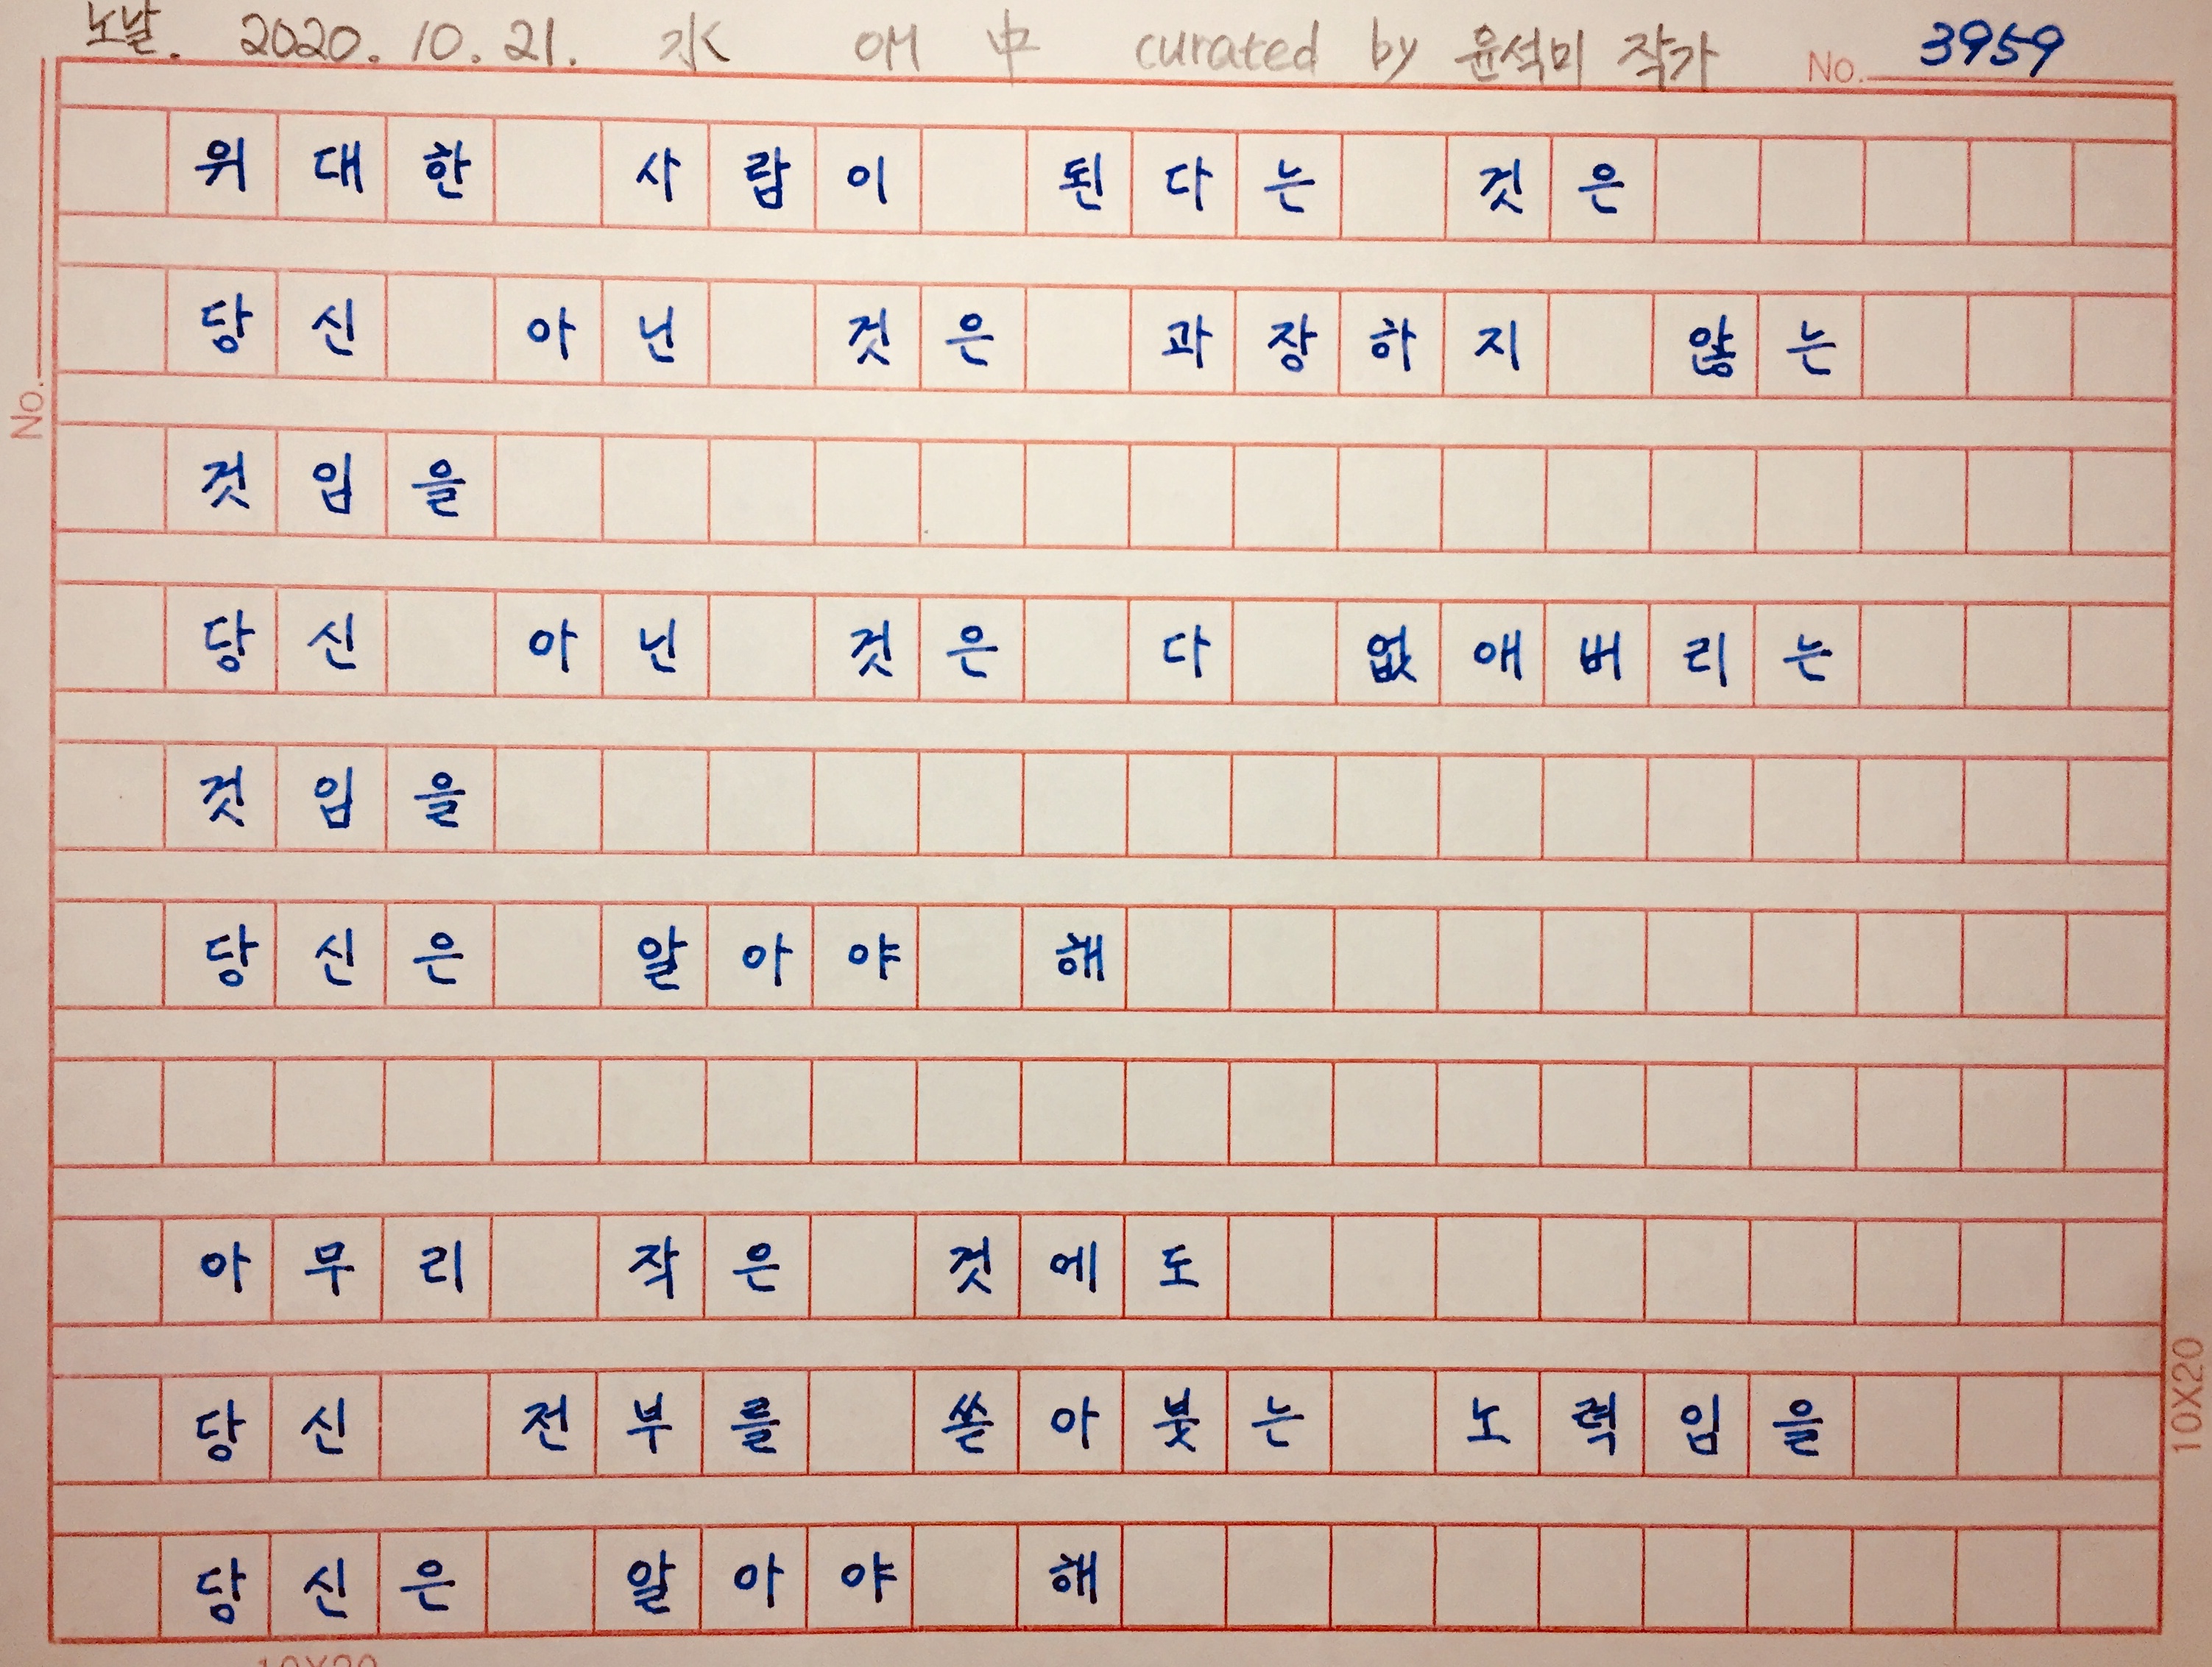 노날. 2020. 10. 21. 水 에 中 curated by 윤석미 작가 No. 3959
위대한 사람이 된다는 것은
당신 아닌 것은 과장하지 않는
No.
것임을
당신 아닌 것은 다 없애버리는
것임을
당신은 알아야 해
아무리 작은 것에도
당신 전부를 쏟아붓는 노력임을
10X20
당신은 알아야 해
10X20